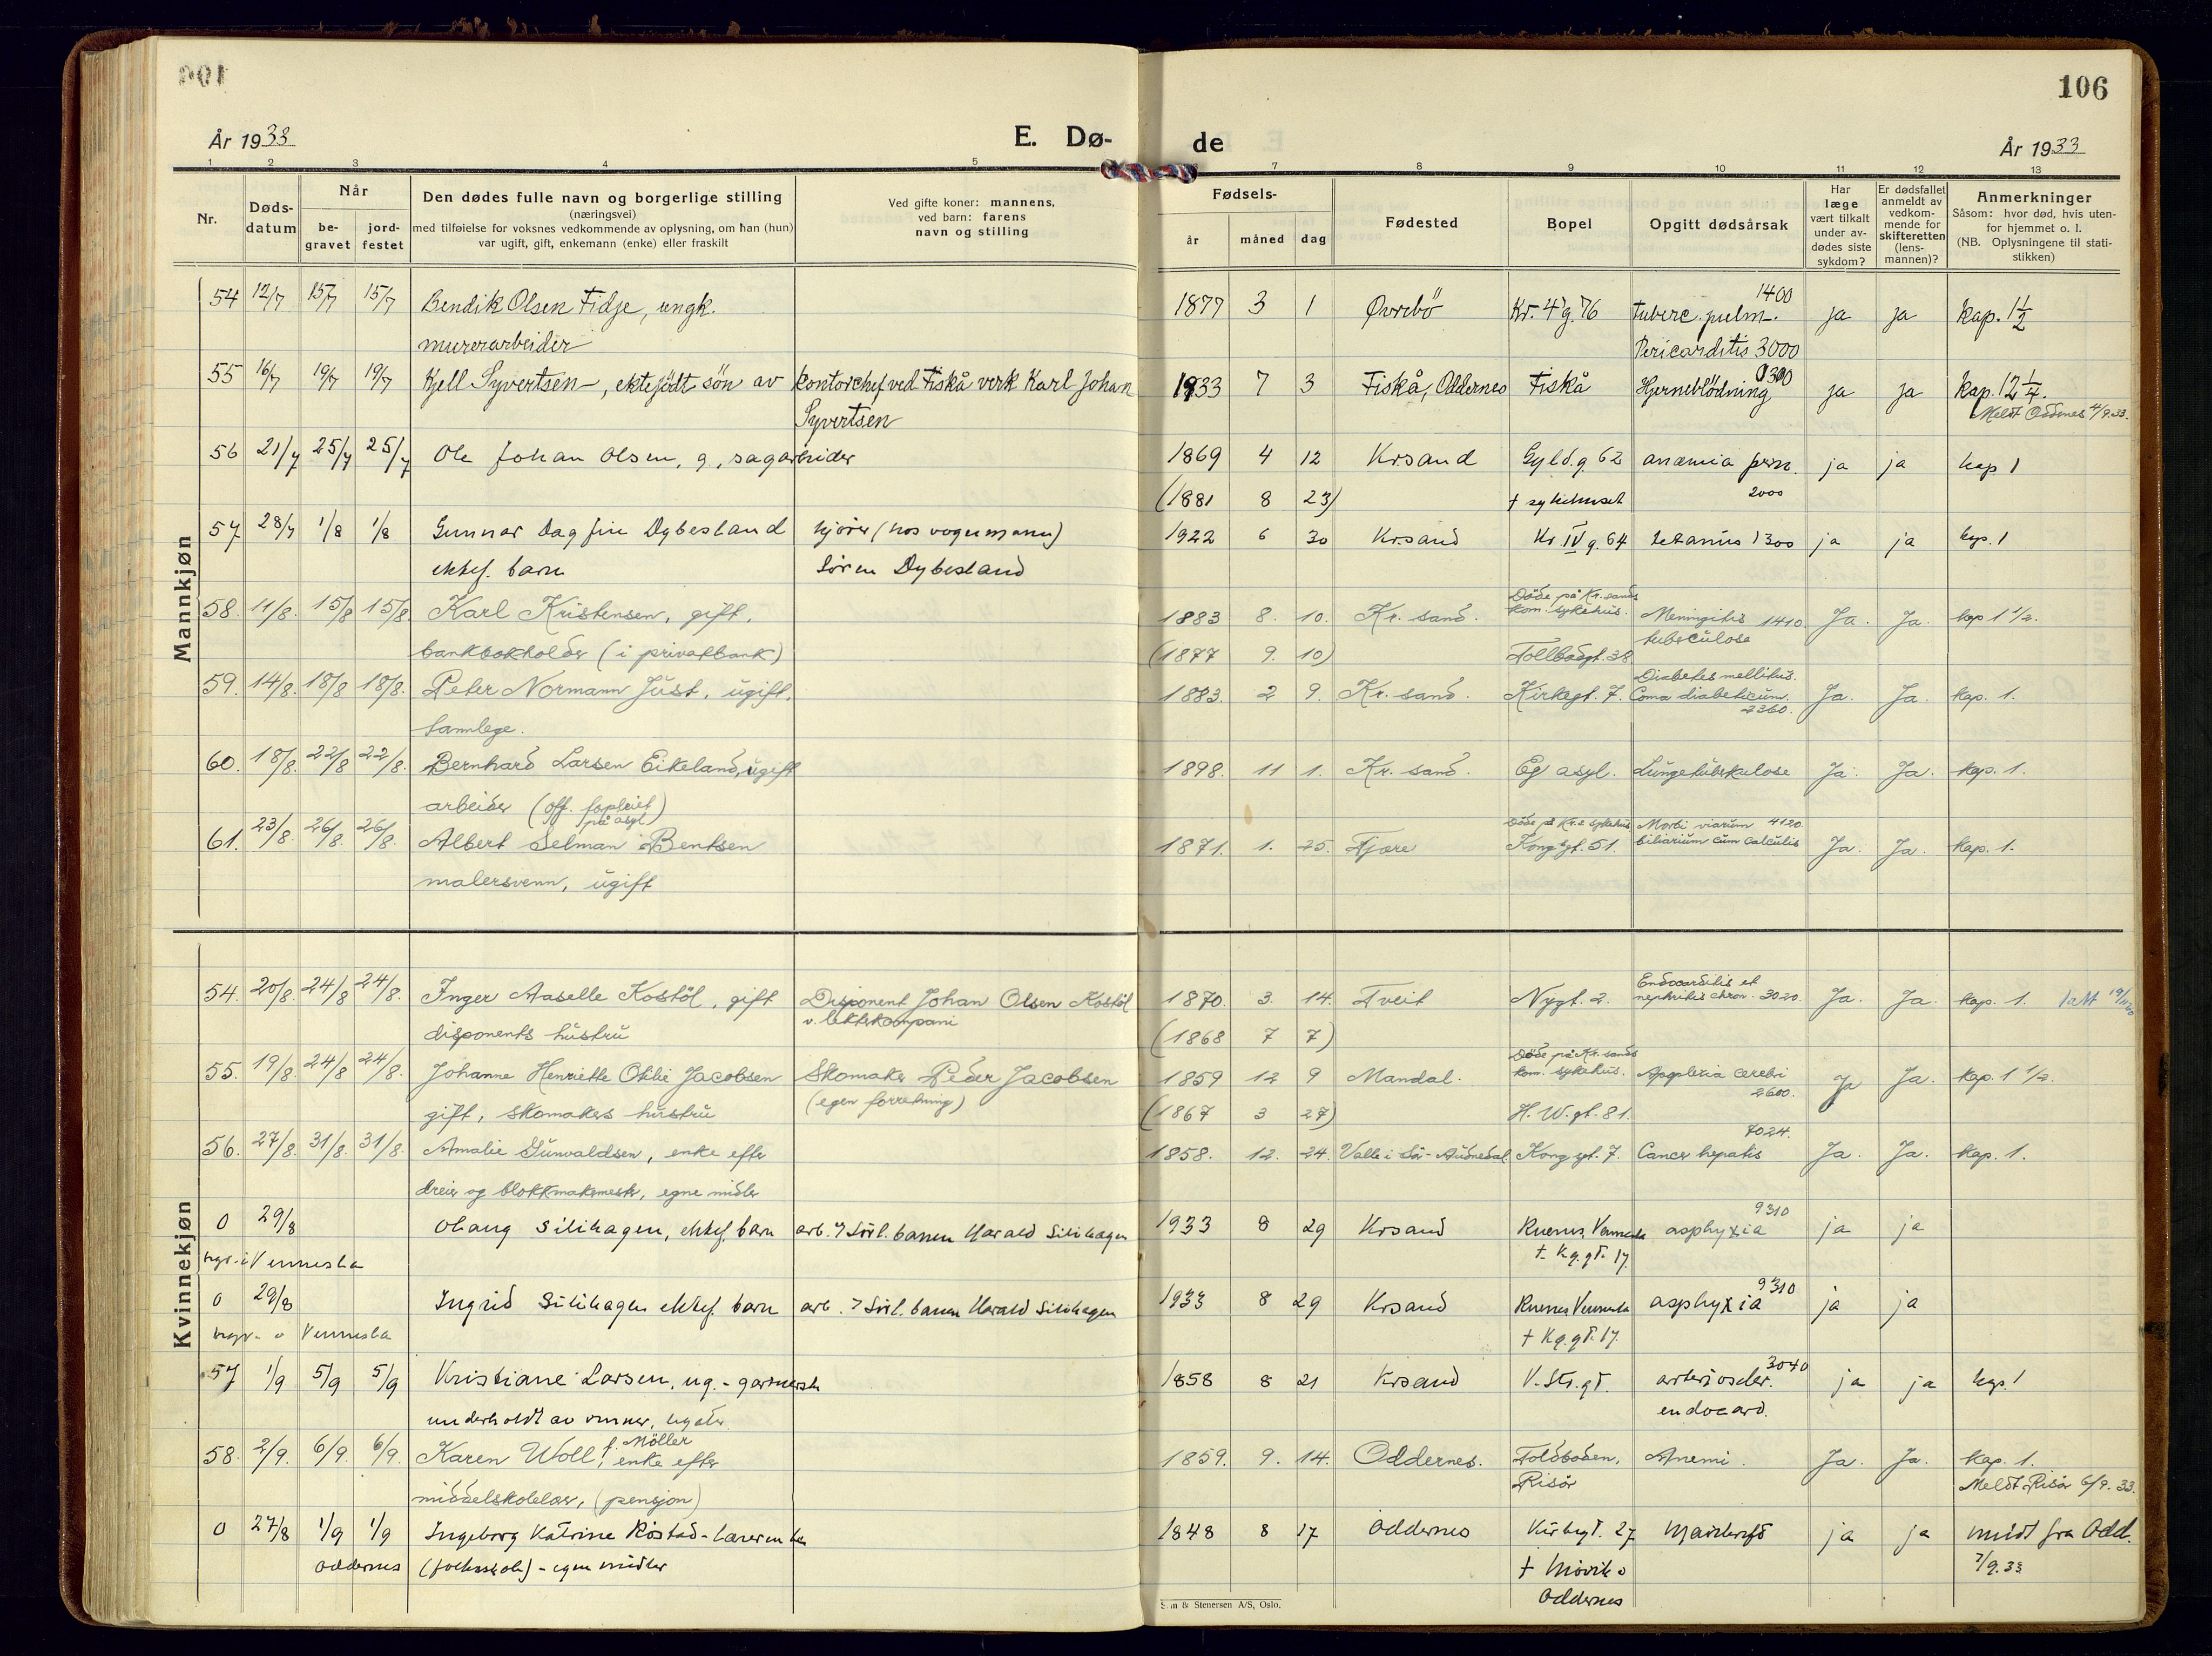 106
År 1933
E. Dø-
de
År 1933
1 2 3 4 5 7 8 9 10 11 12 13
Nr.
Døds-
datum
Når
be-
gravet
jord-
festet
Den dødes fulle navn og borgerlige stilling
(næringsvei)
med tilføielse for voksnes vedkommende av oplysning, om han (hun)
var ugift, gift, enkemann (enke) eller fraskilt
Ved gifte koner: mannens,
ved barn: farens
navn og stilling
Fødsels-
år måned dag
Fødested
Bopel
Opgitt dødsårsak
Har
læge
vært tilkalt
under av-
dødes siste
sykdom?
Er dødsfallet
anmeldt av
vedkom-
mende for
skifteretten
(lens-
mannen)?
Anmerkninger
Såsom: hvor død, hvis uten-
for hjemmet o. l.
(NB. Oplysningene til stati-
stikken)
Mannkjøn
54 12/7 15/7 15/7 Bendik Olsen Fidje, ungk. 1877 3 1 Øvrebö Kr. 4 g. 76 tuberc. pulm. 1400 ja ja kap. 1 1/2
murerarbeider Pericarditis 3000
55 16/7 19/7 19/7 Kjell Syvertsen, ektefödt sön av kontorchef ved Fiskå verk Karl Johan 1933 7 3 Fiskå, Oddernes Fiskå Hjerneblödning ja ja kap. 12 1/4.
Syvertsen Meldt Oddernes 4/9.33.
56 21/7 25/7 25/7 Ole Johan Olsen, g, sagarbeider 1869 4 12 Krsand Gyld.g. 62 anæmia pern. ja ja kap 1
(1881 8 23) † sykehuset 2000
57 28/7 1/8 1/8 Gunnar Dagfin Dybesland kjörer (hos vognmann) 1922 6 30 Krsand Kr IV g. 64 tetanus 1300 ja ja kap. 1
ektef. barn Sören Dybesland
58. 11/8. 15/8 15/8. Karl Kristensen, gift, 1883 8. 10. Kr. sand. Döde på Kr. sands kom. sykehus. Meningitis 1410. Ja. Ja. kap 1 1/2.
bankbokholder (i privatbank) (1877 9. 10) Tollbodgt. 38 tuberculose
59. 14/8. 18/8 18/8. Peter Normann Just, ugift, 1883. 2 9. Kr. sand. Kirkegt. 7. Diabetes mellitus. Coma diabeticum. 2360. Ja. Ja. kap. 1.
tannlege.
60. 18/8. 22/8 22/8. Bernhard Larsen Eikeland, ugift 1898. 11 1. Kr. sand. Eg asyl. Lungetuberkulose Ja. Ja. kap. 1.
arbeider (off. forpleiet på asyl)
61. 23/8. 26/8. 26/8. Albert Selman Bentsen 1871. 1. 25. Fjære Döde på Kr.s sykehus Kongsgt. 51. Morbi viarum 4120 biliarium cum calculis Ja. Ja. kap. 1.
malersvenn, ugift
Kvinnekjøn
54. 20/8. 24/8 24/8. Inger Aaselle Kostöl, gift Disponent Johan Olsen Kostöl 1870. 3. 14. Tveit Nygt. 2. Endocarditis et nephritis chron. 3020. Ja. Ja. kap. 1.
disponents hustru (1868 7 7)
55. 19/8. 24/8 24/8. Johanne Henriette Otilie Jacobsen Skomaker Peder Jacobsen 1859 12 9 Mandal. Döde på Kr. sands kom. sykehus. Apoplexia cerebri 2600. Ja Ja. kap. 1 1/2.
gift, skomakers hustru (egen forretning) (1867 3 27) H. W. gt. 81.
56. 27/8. 31/8. 31/8. Amalie Gunvaldsen, enke efter 1858. 12. 24. Valle i Sör-Audnedal Kongsgt. 7. Cancer hepatis 7024. Ja. Ja. kap. 1.
dreier og blokkmakermester, egne midler
0 29/8 Olaug Silihagen, ektef. barn arb. v/Sörl. banen Harald Silihagen 1933 8 29 Krsand asphyxia 9310 ja ja
begr. i Vennesla † Kg. gt. 17.
0 29/8 Ingrid Silihagen ektef. barn arb. v/Sörl. banen Harald Silihagen 1933 8 29 Krsand asphyxia 9310 ja ja
begr. i Vennesla † Kg. gt. 17.
57 1/9 5/9 5/9 Kristiane Larsen, ug. - 1858 8 21 Krsand V. Str. gt. arterioscler. 3040 ja ja kap. 1
underholdt av venner, legater endocard.
58. 2/9. 6/9. 6/9. Karen Woll, f. Möller enke efter 1859. 9. 14. Oddernes. Toldboden, Anemi. Ja. Ja. kap. 1.
middelskolelærer, (pensjon) Risör Meldt Risör 6/9. 33.
0 27/8 1/9 1/9 Ingeborg Katrine Röstad - lærerinne 1848 8 17 Oddernes Kirkegt. 27 ja ja meldt fra Odd.
Oddernes (folkeskole) - egne midler 7/9.33
Oddernes
& Stenersen A/S, Oslo.